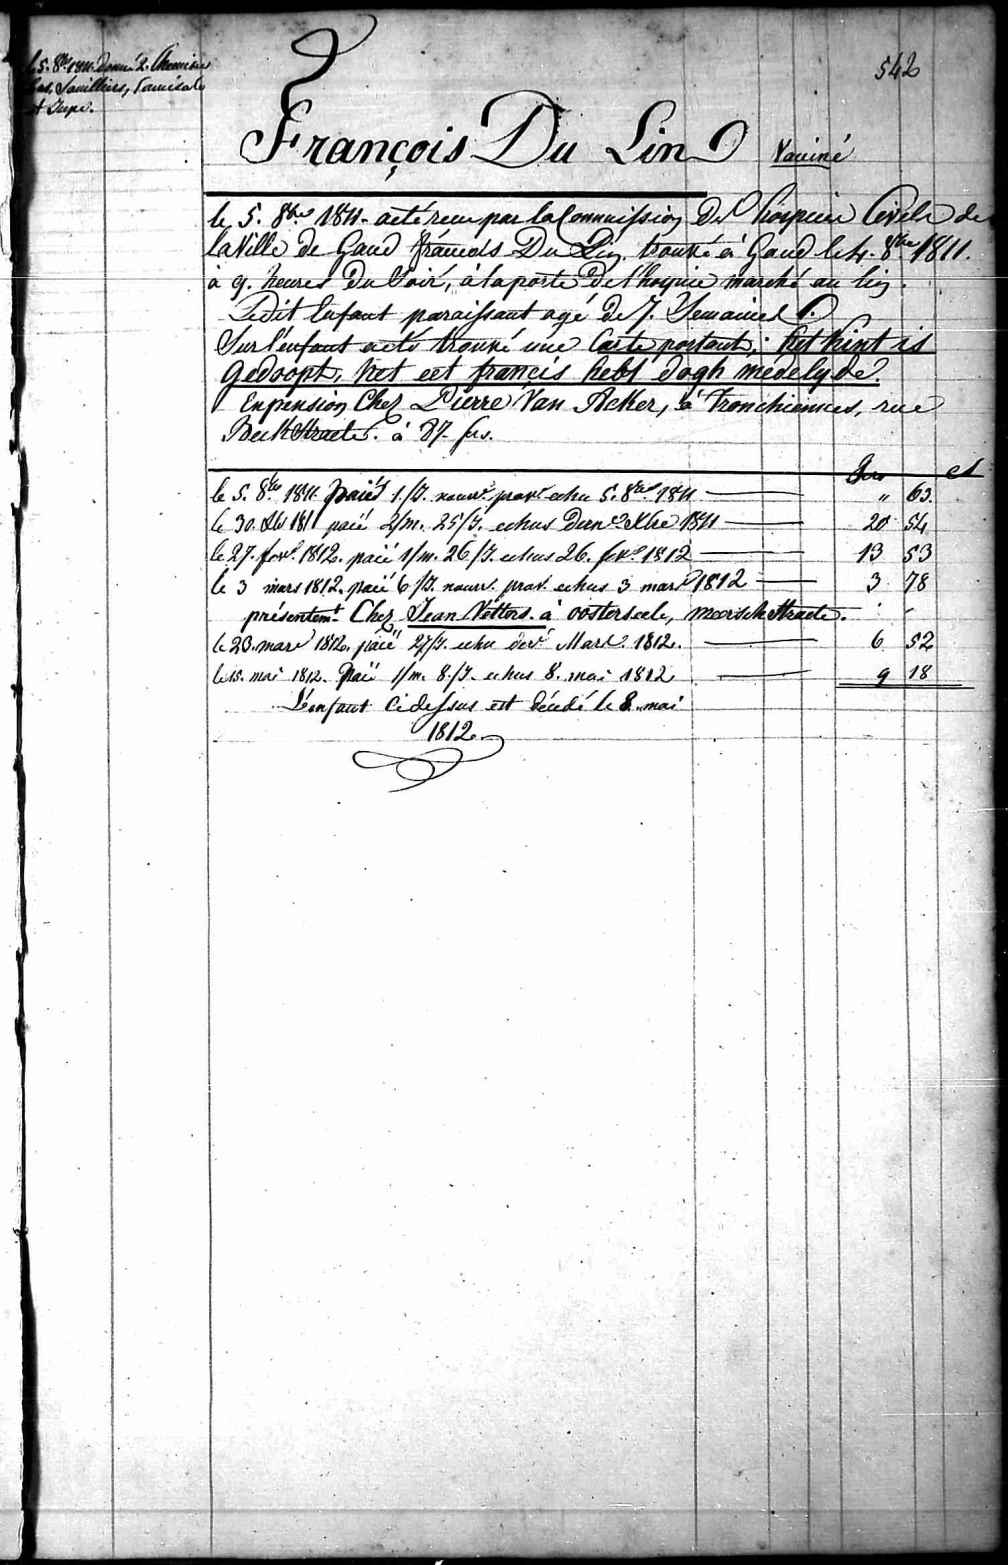 le 5. 8bre 1811. donné 2. Chemises
bas, Souilliers, Camisole
et Jupe.
542
François Du Lin Vaciné
le 5. 8bre 1811. a été recu par la Commission Des hospices Civils de
la Ville de Gand françois Du Lin, trouvé à Gand le 4. 8bre 1811.
à 9. heures Du Soir, à la porte De l'hospice marché au lin.
Ledit Enfant paraissant agé De 7. Semaines.
Sur l'enfant a été trouvé une Carte portant,: het kint is
gedoopt, het eet françis hebt dogh medelyde.
En pension Chez Pierre Van Acker, à Tronchiennes, rue
Beekstraete. à 87. frs.
frs ct
le 5. 8bre 1811. paié 1./J. nourre. prov. echu 5. 8bre 1811 " 63.
le 30. Xbre 1811 paié 2/m. 25/J. echus Dern. Xbre 1811 20 54
le 27. fevr. 1812. paié 1/m. 26/J. echus 26. fevr. 1812 13 53
le 3 mars 1812. paié 6/J. nourr. prov. echus 3 mars 1812 3 78
présentemt. Chez Jean Vettors. à oosterseele, meerschstraete.
le 23. mars 1812. paié 27/J. echu der. Mars. 1812. 6 52
le 15. mai 1812. Paié 1/m. 8/J. echus 8. mai 1812 9 18
L'enfant Cidessus est décédé le 8. mai
1812.